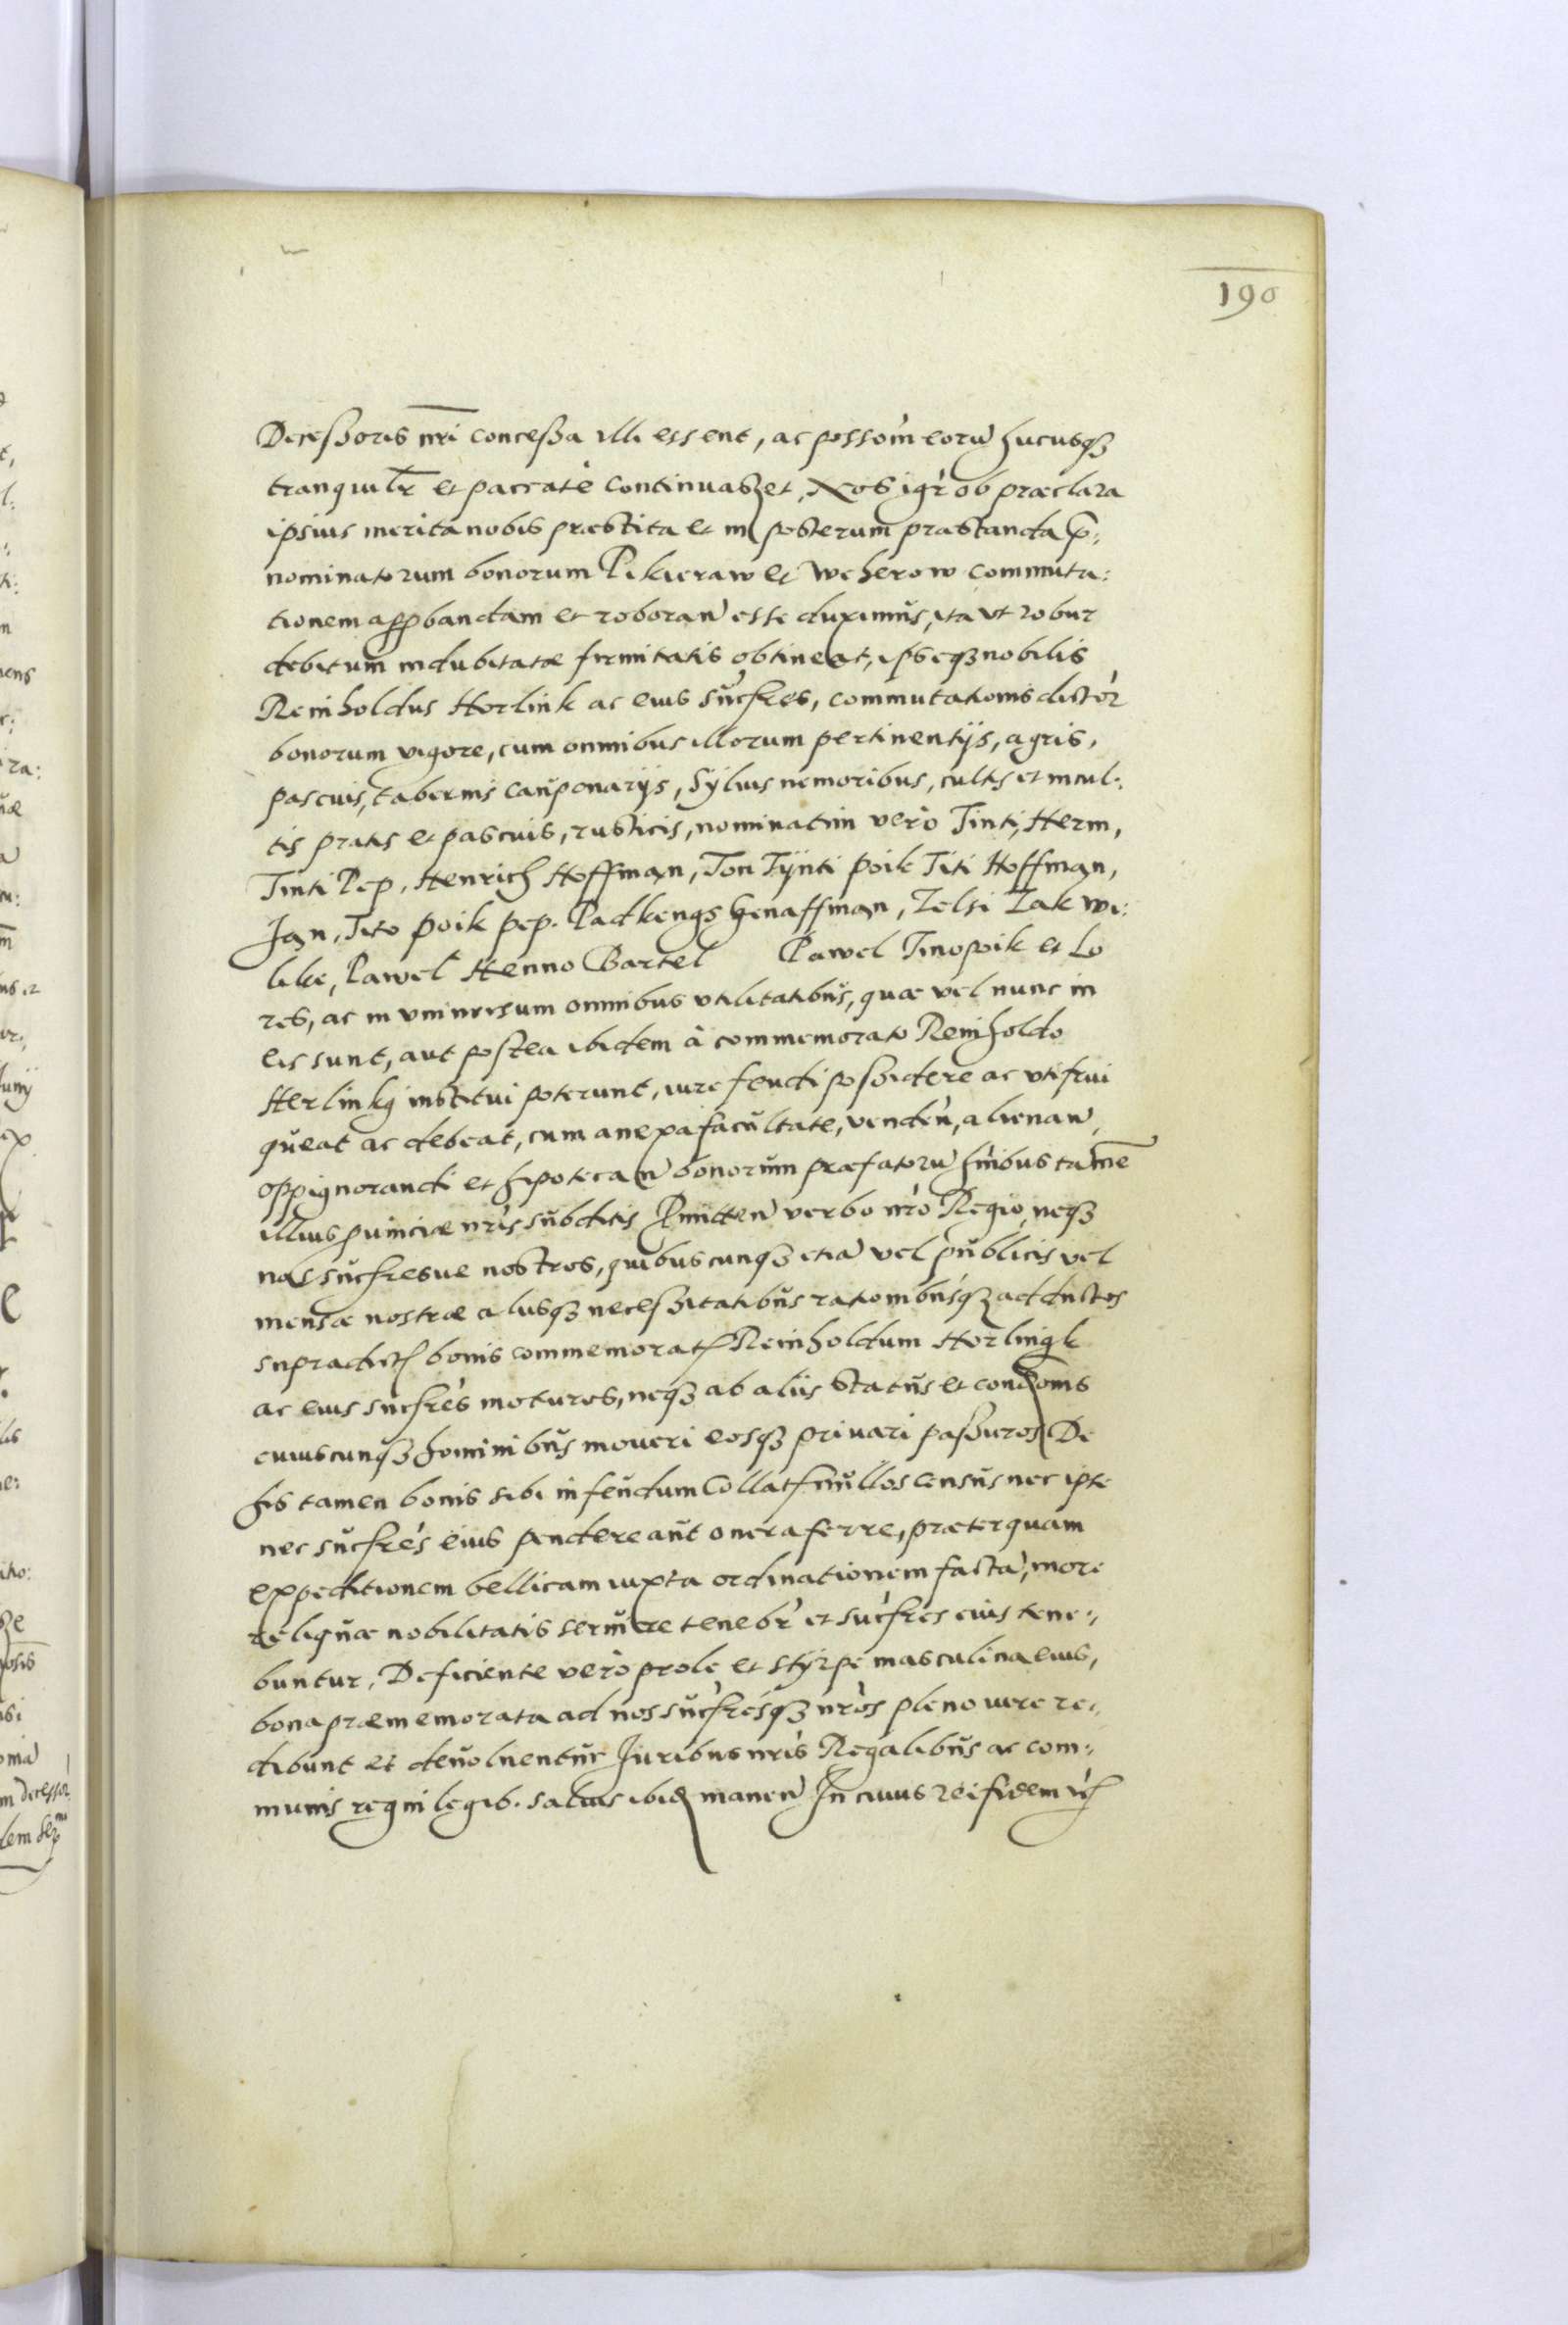 190
Decessoris nri concessa illi essent, ac possom eoru hucusq
tranquilr et paccate continuasset, Nos igr ob praeclara
ipsius merita nobis praestita et in posterum praestanda p:
nominatorum bonorum Pikieraw et Weherow commuta:
tionem approbandam et roboran esse duximus, ita ut robur
debitum indubitatae firmitatis obtineat, ipseq nobilis
Reinholdus Horlink ac eius sucsres, commutationis dictor
bonorum vigore, cum omnibus illorum pertinentijs, agris,
pascuis, tabernis cauponarijs, Syluis nemoribus, cultis et incul:
tis pratis et pascuis, rusticis, nominatim vero Tinti, Herm,
Tinti Pep, Henrich Hoffman, Ton Tijnti poik Titi Hoffman,
Jan, Tito poik pep. Padkengs Henaffman, Zelsi Zak we:
like, Pawel Henno Bartel Pawel Tinopoik et Lo
res, ac in vniuersum omnibus vtilitatibus, quae vel nunc in
eis sunt, aut postea ibidem à commemorato Reinholdo
Herlinkg institui poterunt, iure feudi possidere ac vtifrui
queat ac debeat, cum anexa facultate, venden, alienan,
oppignorandi et hipotecan bonorum praefatoru hnibus tamē
illius puinciae nris subditis Pmitten verbo nro Regio, neq
nos sucsresue nostros, quibuscunq etia vel publicis vel
mensae nostrae aliisq necessitatibus rationibusq adductos
supradict bonis commemorat Reinholdum Horlingk
ac eius sucsres moturos, neq ab aliis status et condoms
cuiuscunq hominibus moueri eosq priuari passuros De
his tamen bonis sibi in feudum Collat nullos census nec ipse
nec sucsres eius pendere aut onera ferre, praeterquam
expeditionem bellicam iuxta ordinationem facta, more
reliquae nobilitatis seruire tenebr et sucsres eius tene:
buntur, Deficiente vero prole et styrpe masculina eius,
bona praememorata ad nos sucsresq nros pleno iure re:
dibunt et deuoluentur Juribus nris Regalibus ac com:
munis regni legib. saluis ibid manen In cuius rei fidem rc